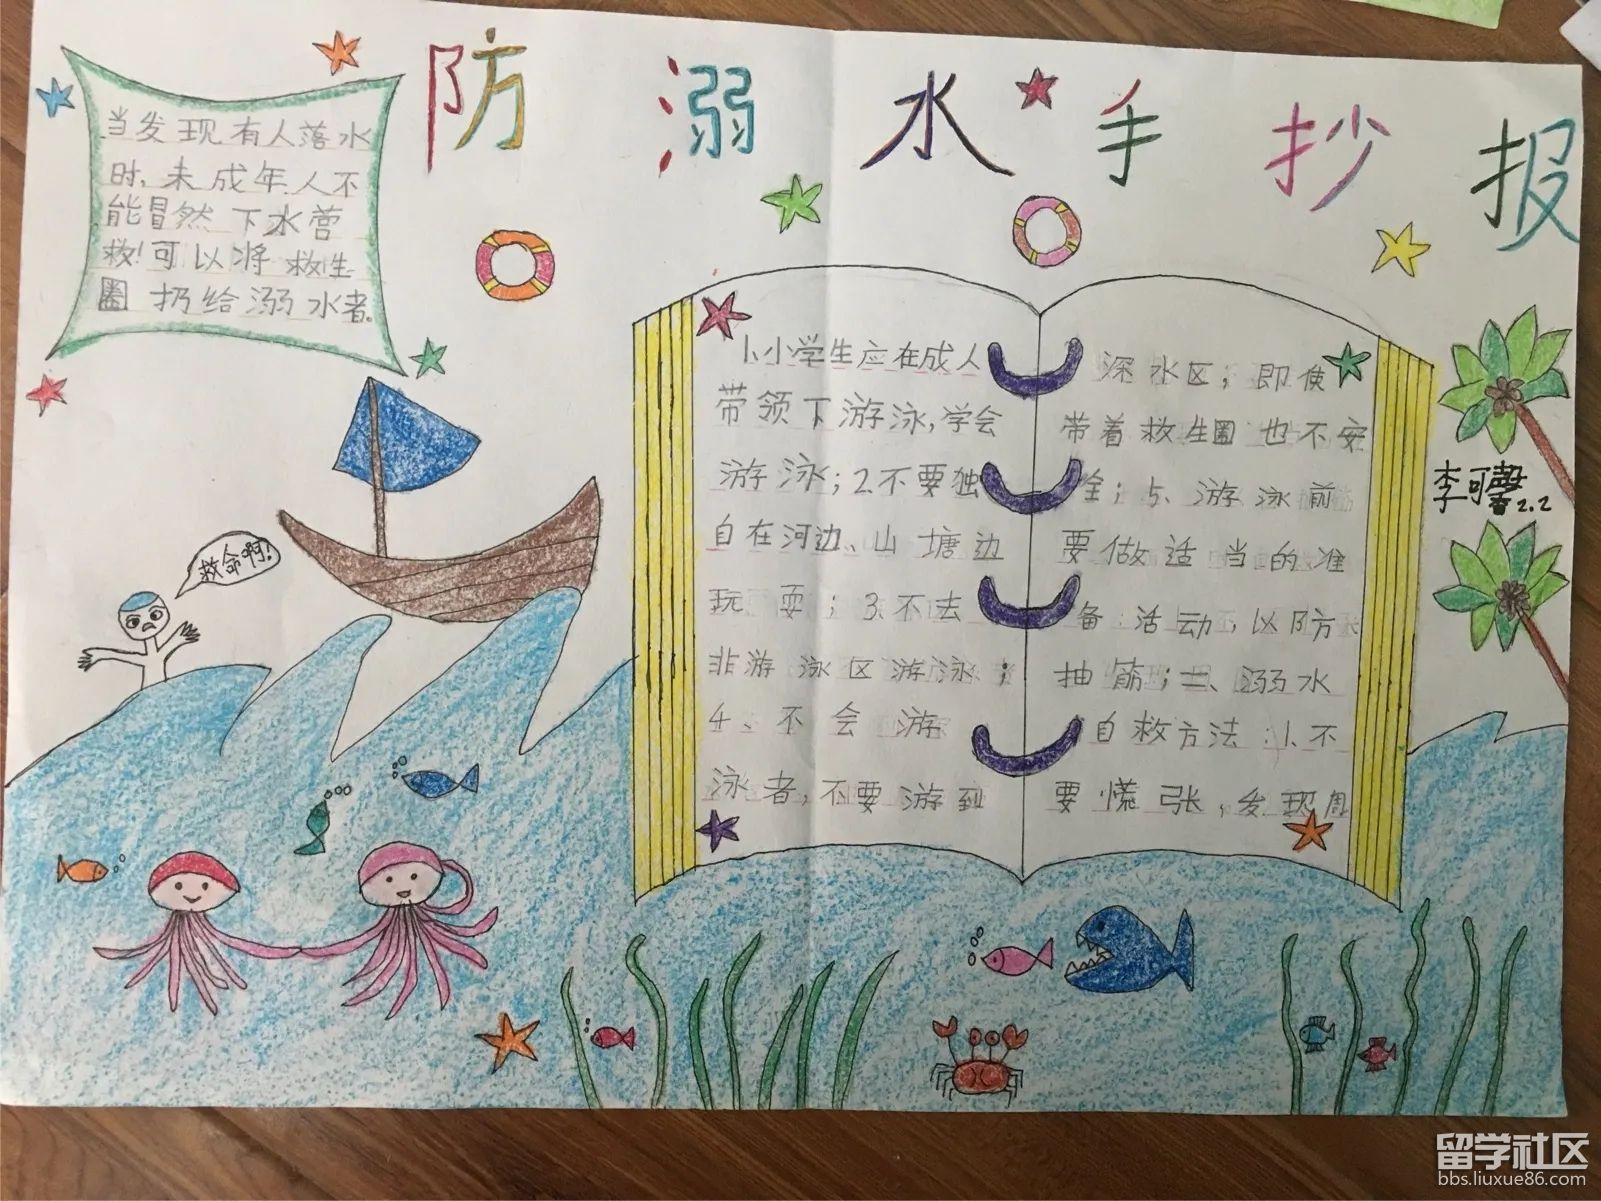 防溺水手抄报
当发现有人落水
时,未成年人不
能冒然下水营
救!可以将救生
圈扔给溺水者。
救命啊!
1、小学生应在成人
带领下游泳,学会
游泳;2.不要独
自在河边、山塘边
玩耍;3.不去
非游泳区游泳;
4、不会游
泳者,不要游到
深水区;即使
带着救生圈也不安
全;5、游泳前
要做适当的准
备活动,以防
抽筋;二、溺水
自救方法:1.不
要慌张,发现周
李可馨2.2
留学社区
bbs.liuxue86.com